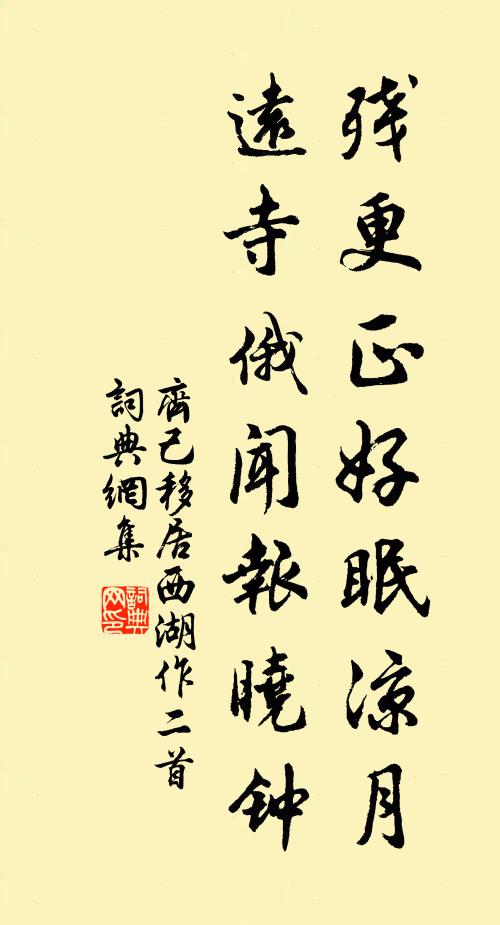 残更正好眠凉月
遠寺俄闻報曉钟
齊己移居西湖作二首
詞典網集
詞典网印